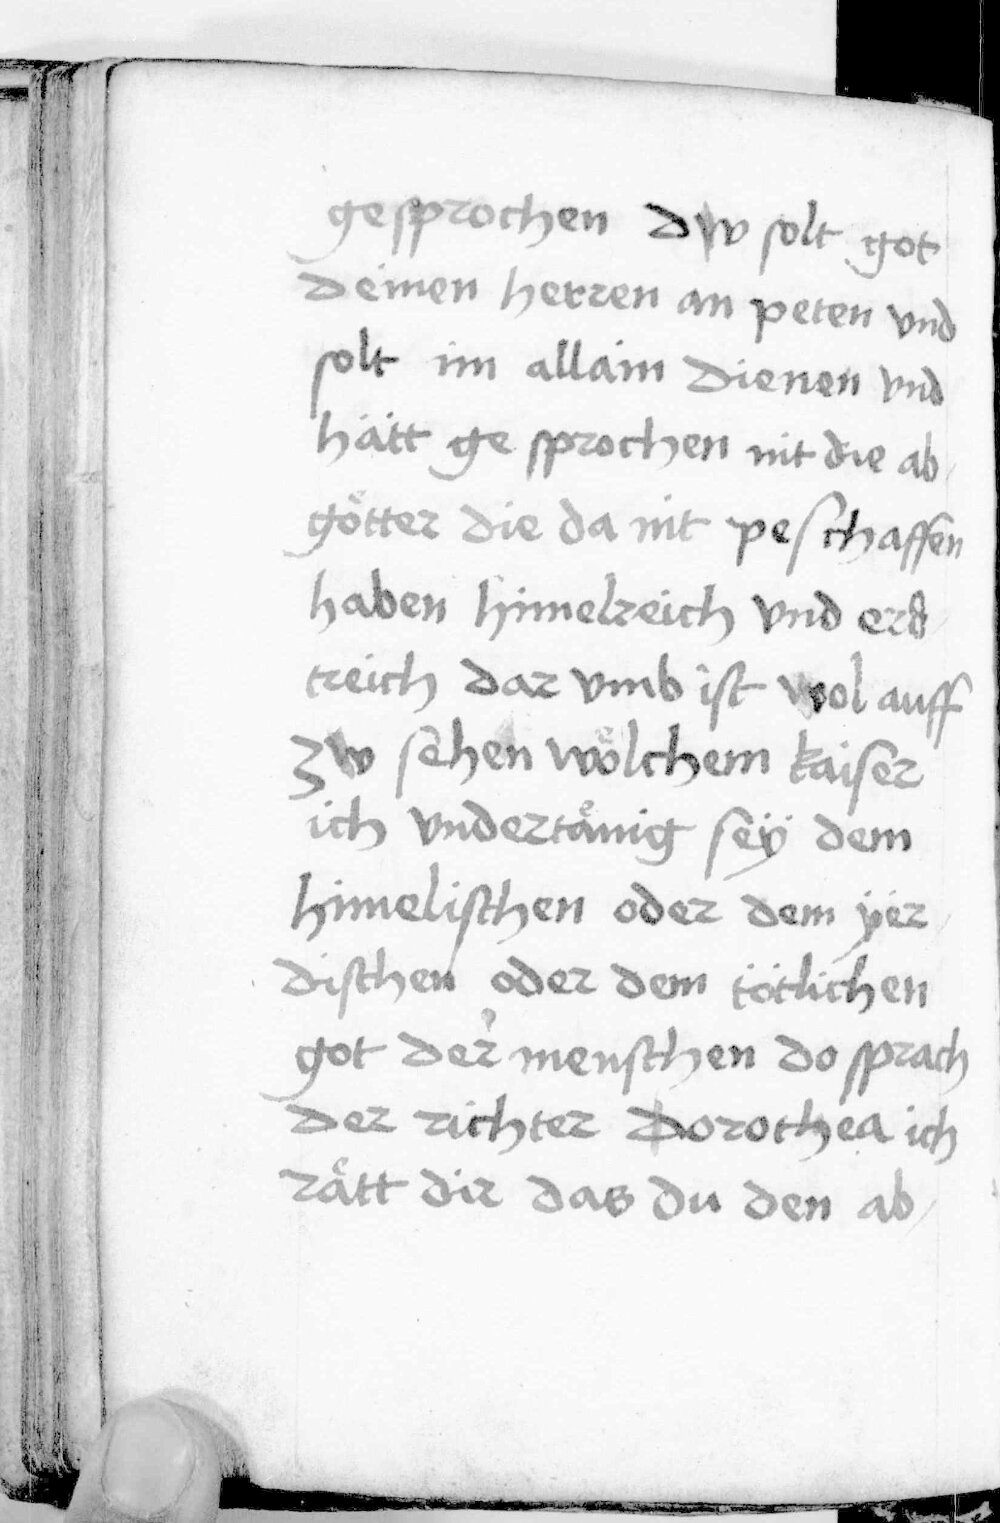 gesprochen dw solt got
deinen herren an peten vnd
solt im allain dienen vnd
hatt ge sprochen nit die ab
götter die da nit peschaffen
haben himelreich vnd erd
treich dar vmb ist wol auff
zw sehen wölchem kaiser
ich vndertänig seÿ dem
himelischen oder dem ÿer
dischen oder dem tötlichen
got der menschen do sprach
der richter Dorothea ich
rätt dir das du den ab